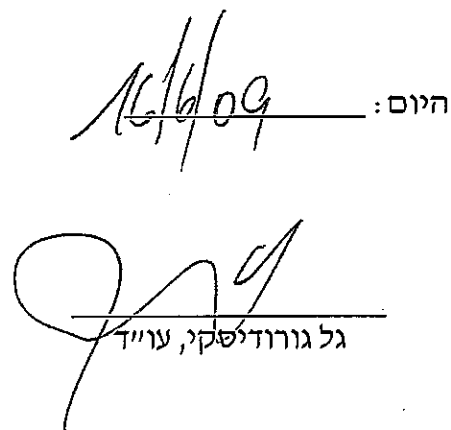 היום: 16/6/09
גל גורודיסקי, עו״ד